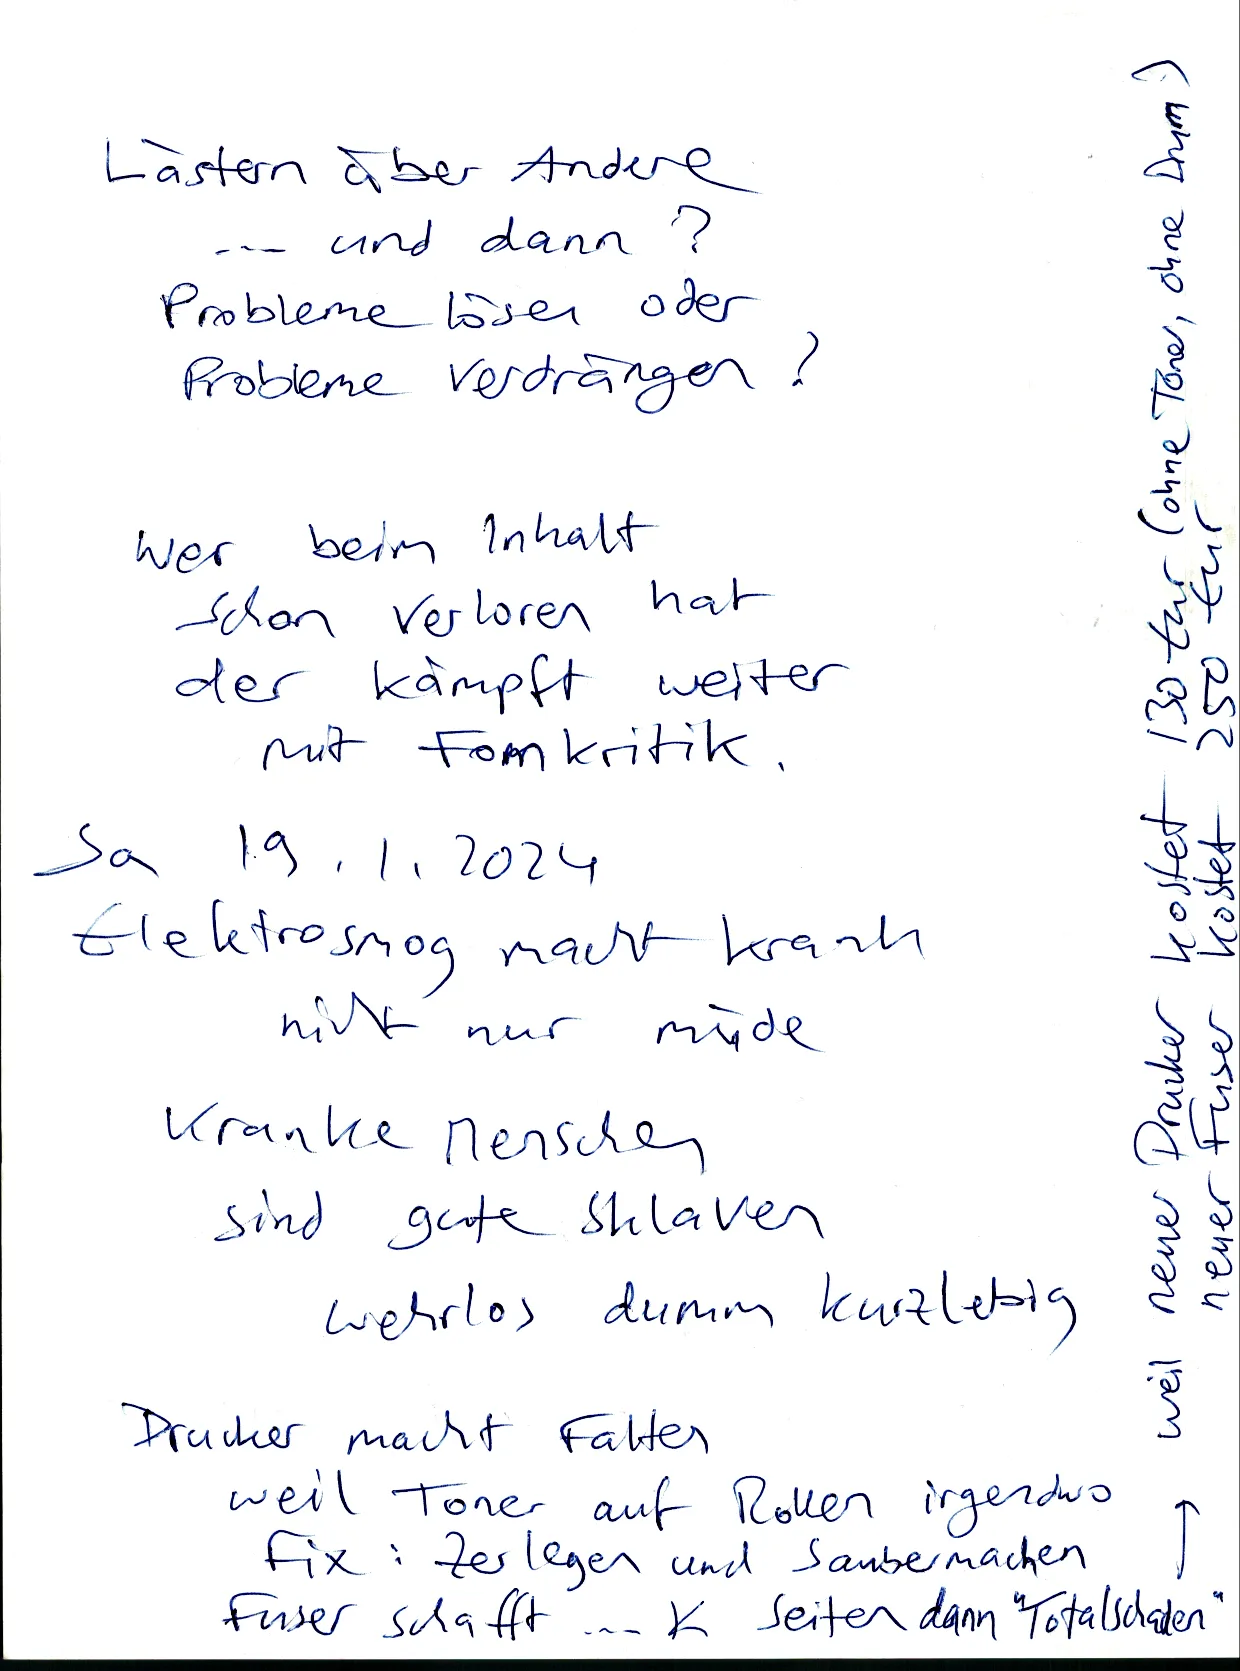 Lästern über Andere
... und dann?
Probleme lösen oder
Probleme verdrängen?
Wer beim Inhalt
schon verloren hat
der kämpft weiter
mit Fomkritik.
Sa 19.1.2024
Elektrosmog macht krank
nicht nur müde
Kranke Menschen
sind gute Sklaven
wehrlos dumm kurzlebig
Drucker macht Falten
weil Toner auf Rollen irgendwo
Fix: Zerlegen und Saubermachen
Fuser schafft ... K Seiten dann "Totalschaden"
→ weil neuer Drucker kostet 130 Eur (ohne Toner, ohne Drum)
neuer Fuser kostet 250 Eur